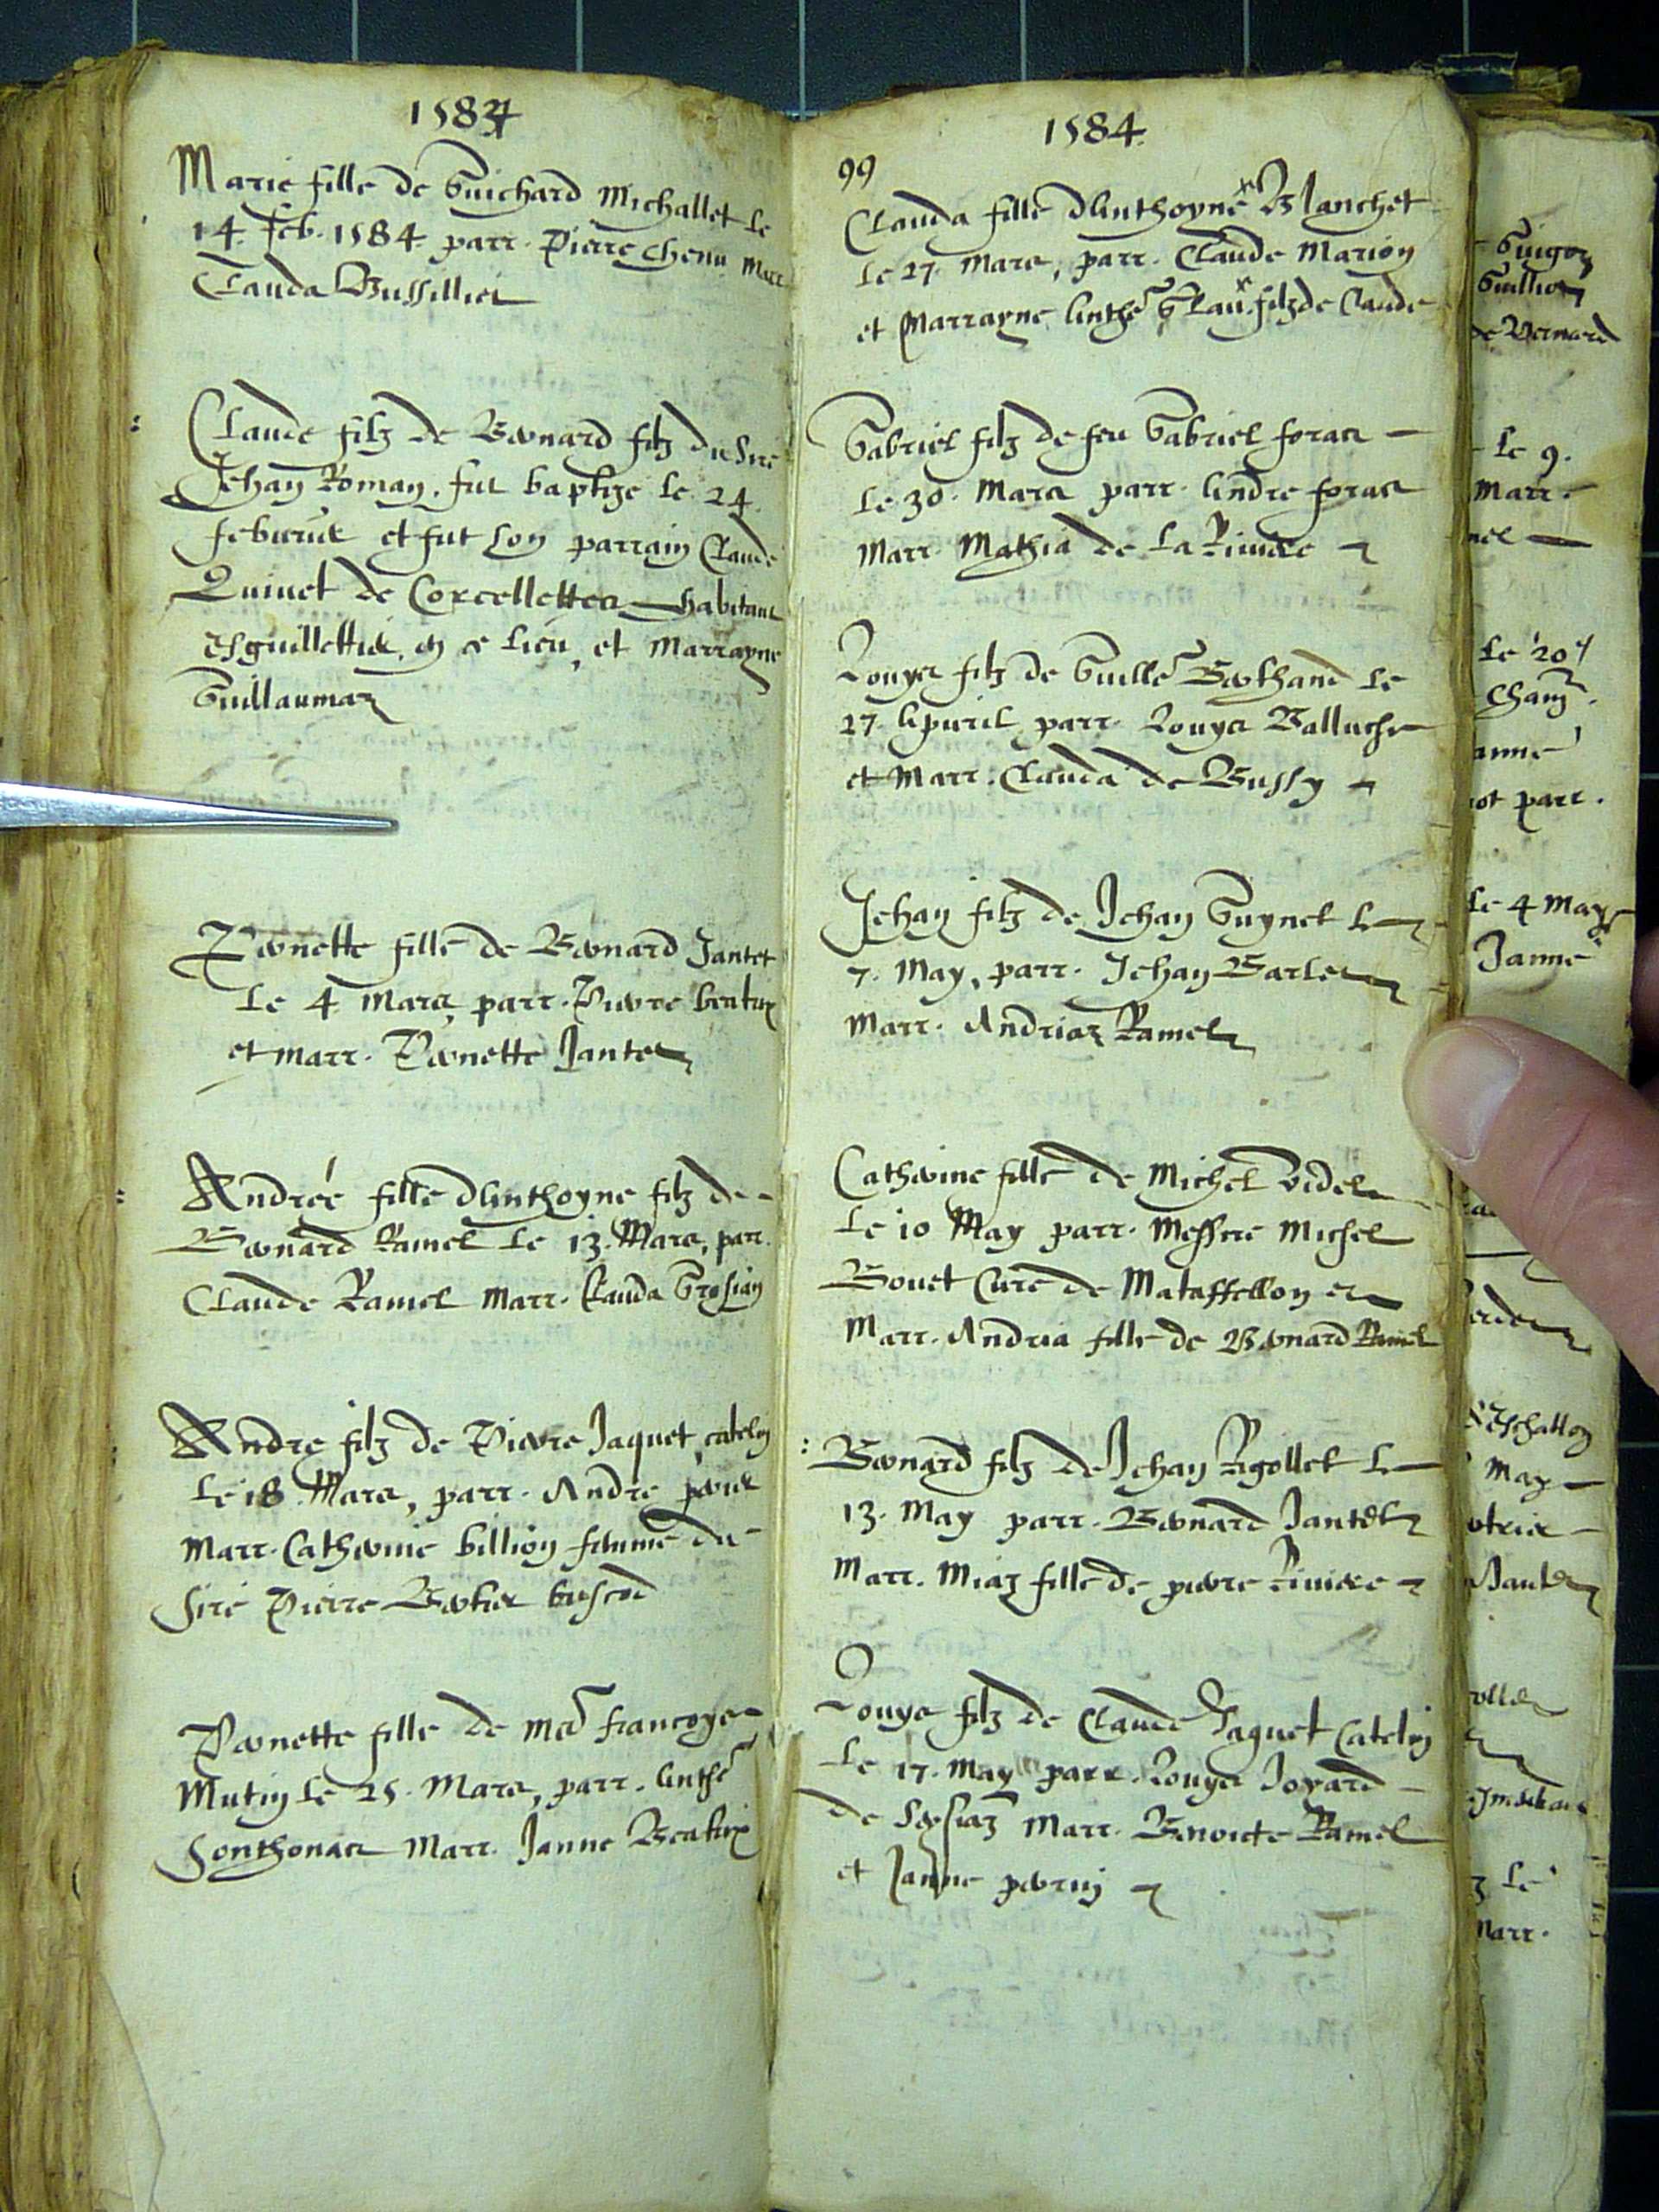 1584
Marie fille de Guichard Michallet le
14. feb. 1584. parr. Pierre Chenu Marr
Clauda Bussillier
Claude filz de Bernard filz du Sire
Jehan Roman, fut baptize le 24
februrier et fut son parrain Claude
Quinet de Corcelettes habitant
esguillettier, en ce lieu, et Marrayne
Guillaumaz
Pernette fille de Bernard Jantet
le 4 Mars, parr. Pierre beatrix
et marr. Pernette Jantet
Andrée fille dAnthoyne filz de
Bernard Ramel le 13. Mars, parr.
Claude Ramel Marr. Clauda Grosian
Andre filz de Pierre Jaquet, catelin
le 18. Mars, parr. Andre perier
Marr. Catherine billion femme du
Sire Pierre Bertier
Pernette fille de me francoys
Mutin le 25. Mars, parr. Anthe
Sonthonas Marr. Janne Beatrix
1584.
99
Clauda fille dAnthoyne Blanchet
le 27. Mars, parr. Claude Marion
et Marrayne Anthe filz de Claude
Gabriel filz de feu Gabriel foras
le 30. Mars parr. Andre foras
Marr. Mathia de la Riviere
Louys filz de Guille Berthand le
27. Apvril, parr. Louys Balluche
et Marr. Clauda de Bussy
Jehan filz de Jehan Guynet le
7. May, parr. Jehan Barlet
Marr. Andriaz Ramel
Catherine fille de Michel Videl
le 10 May parr. Messire Michel
Bouet Curé de Mataffellon et
Marr. Andria fille de Bernard Ramel
Bernard filz de Jehan Rigollet le
13. May parr. Bernard Jantet
Marr. Miaz fille de pierre Riviere
Louys filz de Claude Jaquet Catelin
le 17. May parr. Louys Joyard
de Marr. Benoicte Ramel
et Janne perrin
Guigon
Guillion
de Bernard
le 9.
Marr.
le 20
anne
parr.
le 4 May
Janne
May
le
Marr.